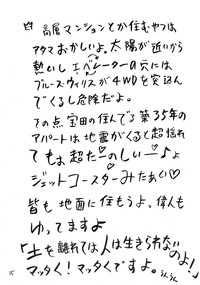 高層マンションとか住むやつは
アタマおかしいよ。太陽が近いから
熱いしエベレーターの穴には
ブルース・ウィリスが4WDを突込ん
でくるし危険だよ。
その点宝田の住んでる築35年の
アパートは地震がくると超揺れ
てもぉ超たーのしいー♪♪
ジェットコースターみたぁい♡
皆も地面に住もうよ、偉人も
ゆってますよ
「土を離れては人は生きられないのよ!」
マッタく!マッタくですよ。うんうん
15